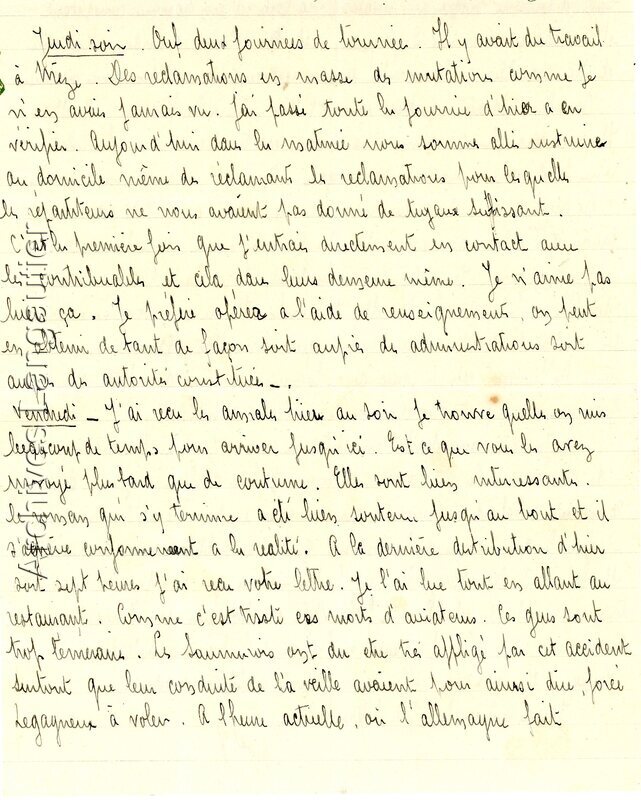 Jeudi soir. Ouf deux journées de tournée. Il y avait du travail
à Mèze. Des reclamations en masse des mutations comme je
n'en avais jamais vu. J'ai passé toute la journée d'hier a en
vérifier. Aujourd'hui dans la matinée nous sommes allés instruire
au domicile même des réclamants les reclamations pour lesquelles
les répartiteurs ne nous avaient pas donné de tuyaux suffissant.
C'est la première fois que j'entrais directement en contact avec
les contribuables et cela dans leurs demeure même. Je n'aime pas
bien ça. Je préfère opérer a l'aide de renseignements, on peut
en obtenir de tant de façon soit auprès des administrations soit
auprès des autorités constituées -.
Vendredi - J'ai reçu les annales hier au soir. Je trouve quelles on mis
beaucoup de temps pour arriver jusqu'ici. Est ce que vous les avez
envoyé plus tard que de coutume. Elles sont bien interessantes.
le roman qui s'y termine a été bien soutenu jusqu'au bout et il
s'achève conformement a la realité. A la dernière distribution d'hier
soit sept heures j'ai reçu votre lettre. Je l'ai lue tout en allant au
restaurant. Comme c'est triste ces morts d'aviateurs. Ces gens sont
trop temeraires. Les Saumurois ont du etre très affligé par cet accident
surtout que leur conduite de la veille avaient pour ainsi dire, forcé
Legagneux à voler. A l'heure actuelle, où l'allemagne fait
Archives Dreguilier